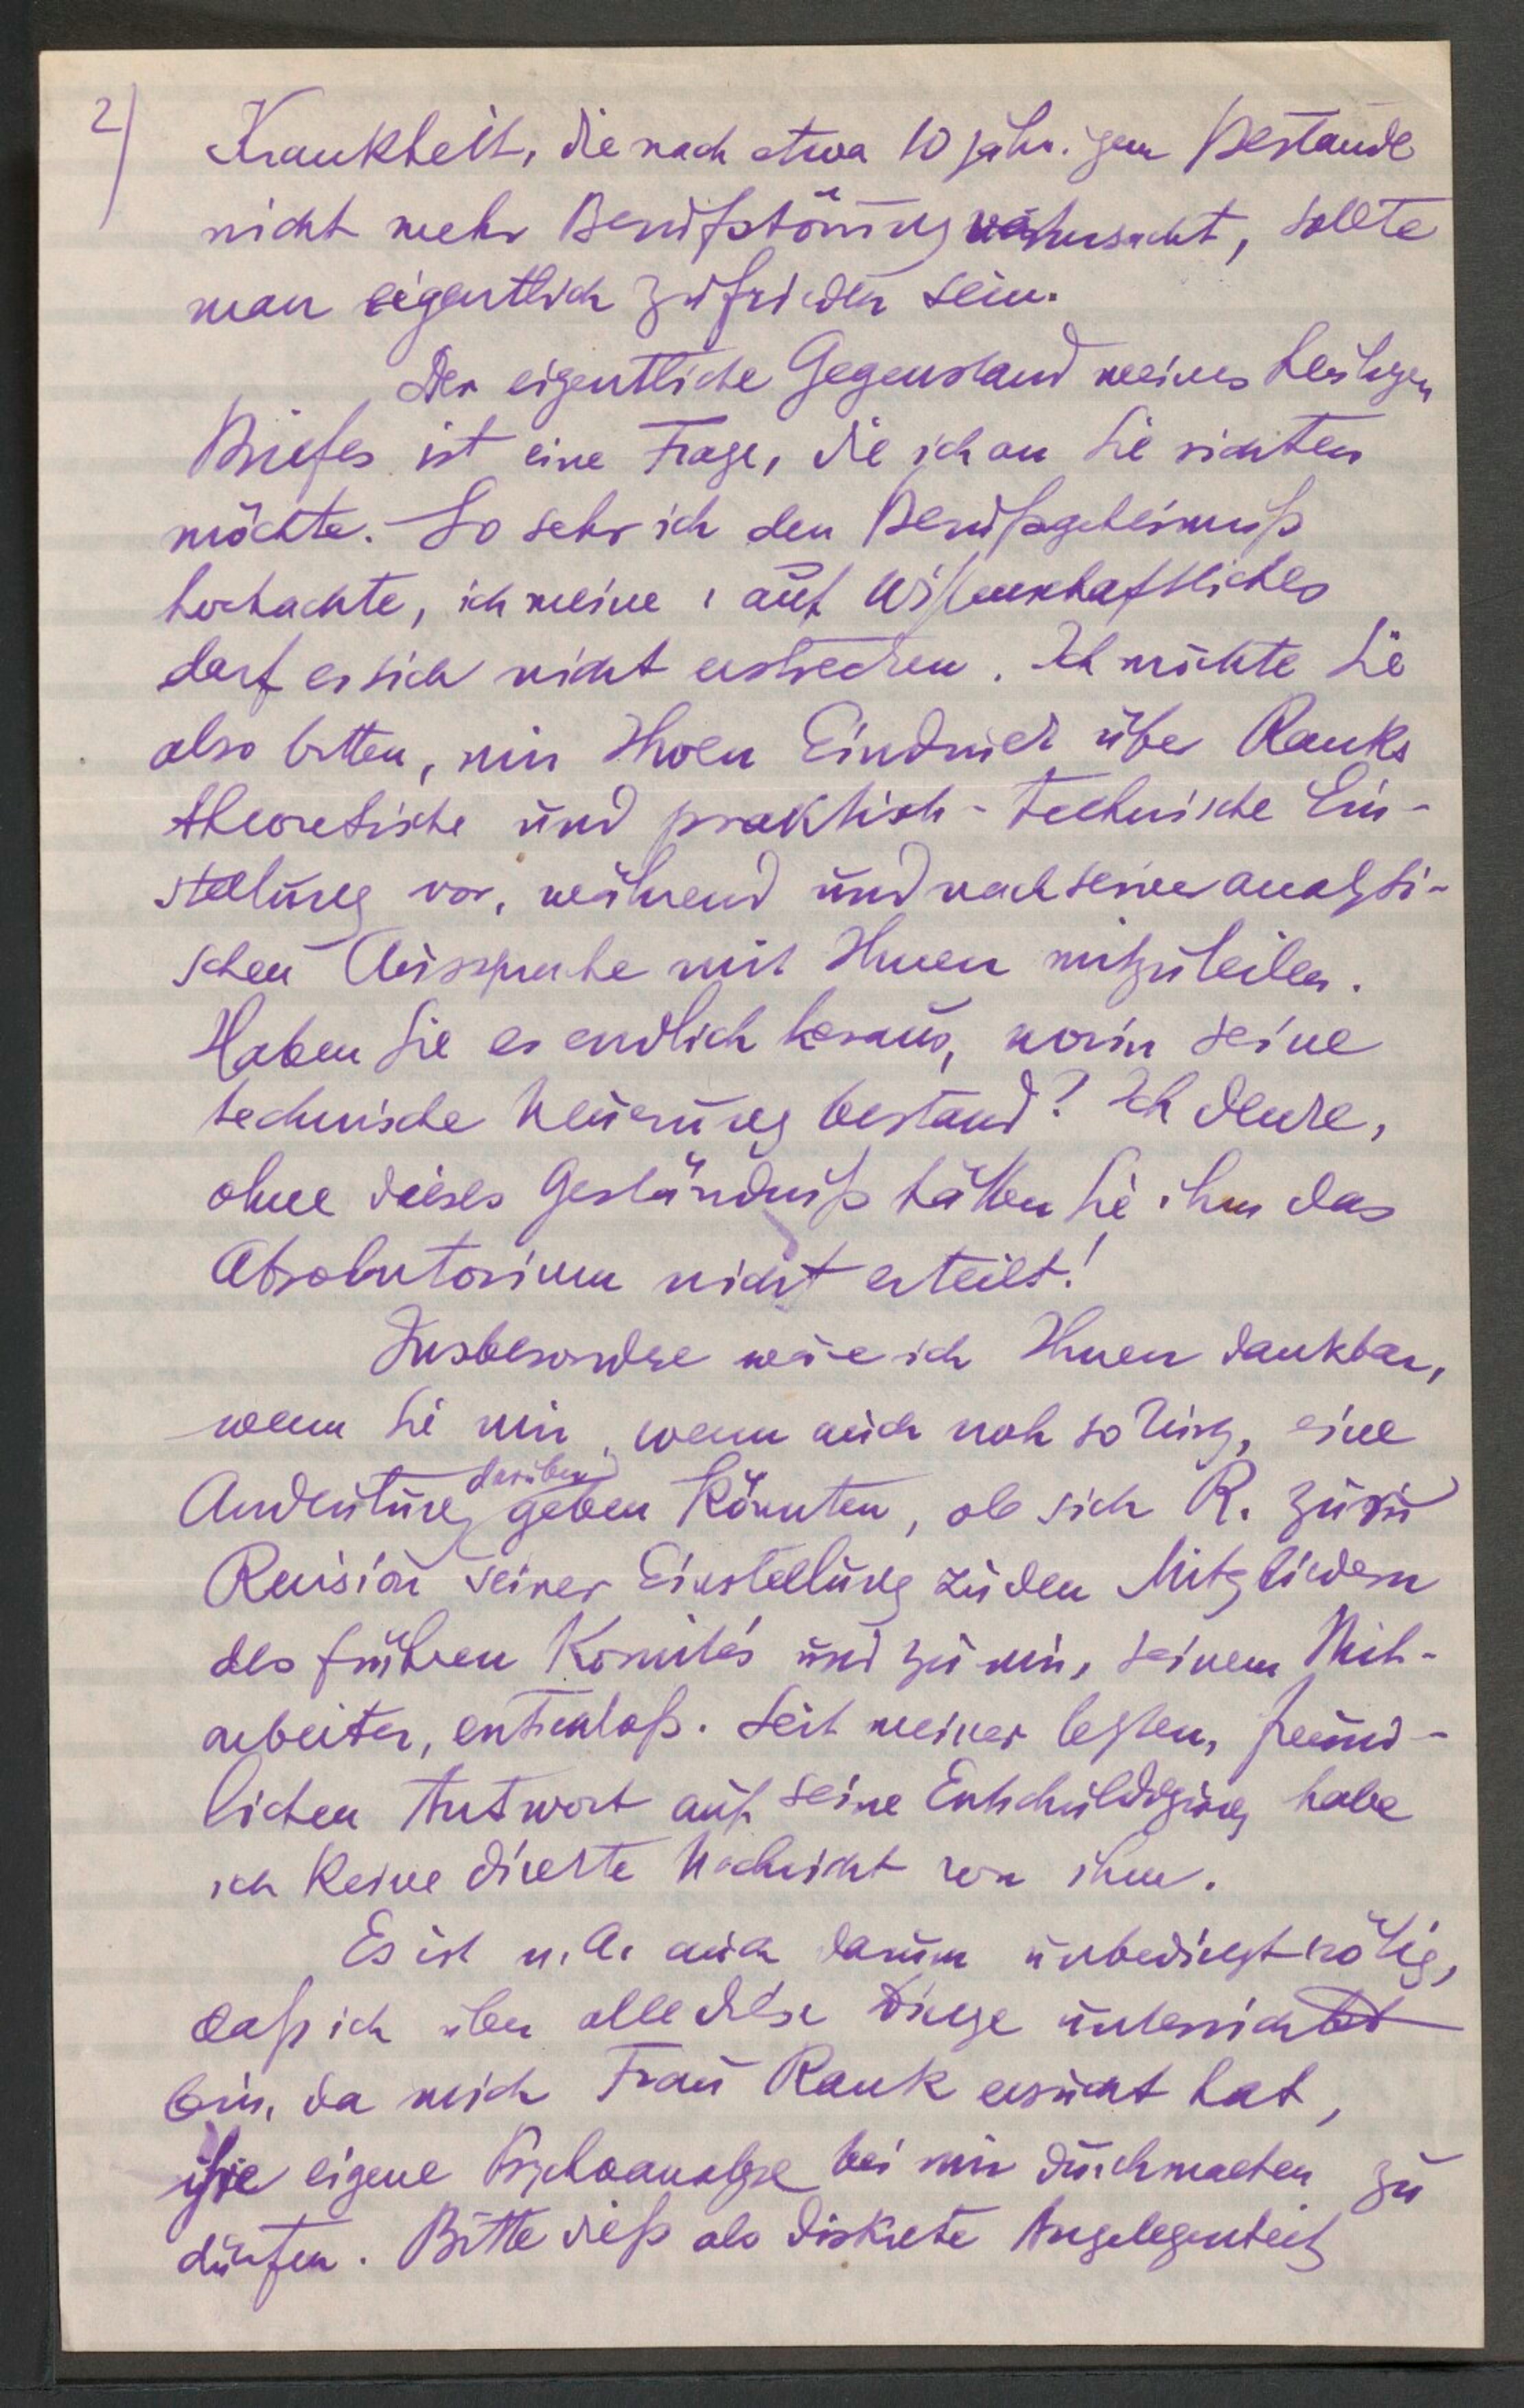 2)
Krankheit, die nach etwa 10 jähr. igem Bestande
nicht mehr Berufstörung verursacht, sollte
man eigentlich zufrieden sein.
Der eigentliche Gegenstand meines heutigen
Briefes ist eine Frage, die ich an Sie richten
möchte. So sehr ich den Berufsgeheimniß
hochachte, ich meine, auf Wissenschaftliches
darf er sich nicht erstrecken. Ich möchte Sie
also bitten, mir Ihren Eindruck über Ranks
theoretische und praktisch-technische Ein-
stellung vor, während und nach seiner analyti-
schen Aussprache mit Ihnen mitzuteilen.
Haben Sie es endlich heraus, worin seine
technische Neuerung bestand? Ich denke,
ohne dieses Geständniß hätten Sie ihm das
Absolutorium nicht erteilt!
Insbesondre wäre ich Ihnen dankbar,
wenn Sie mir, wenn auch noch so kurz, eine
Andeutung darüber geben könnten, ob sich R. zur
Revision seiner Einstellung zu den Mitgliedern
des frühren Komités und zu mir, seinem Mit-
arbeiter, entschloß. Seit meiner letzten, freund-
lichen Antwort auf seine Entschuldigung habe
ich keine direkte Nachricht von ihm.
Es ist u. A. auch darum unbedingt nötig,
daß ich über alle diese Dinge unterrichtet
bin, da mich Frau Rank ersucht hat,
ihre eigene Psychoanalyse bei mir durchmachen zu
dürfen. Bitte dieß als diskrete Angelegenheit